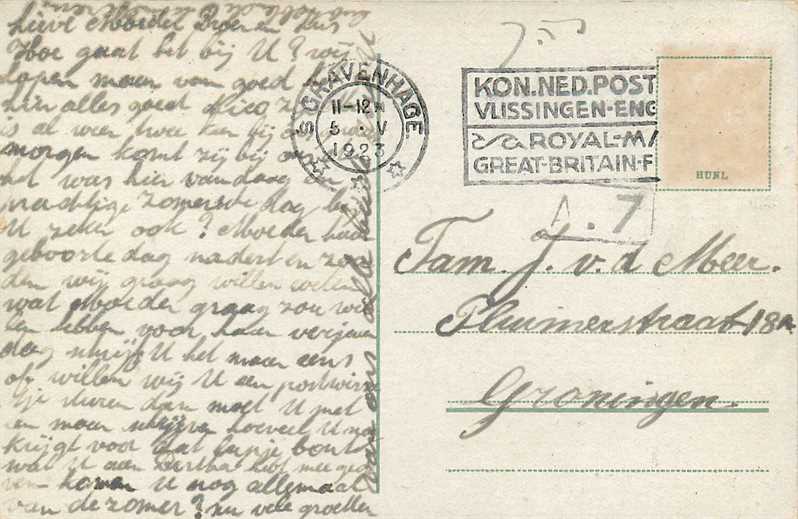 lieve Moeder Broer en Zus
Hoe gaat het bij U? wij
hopen maar van goed
hier alles goed Rico
is al weer twee
morgen komt zij bij
het was hier vandaag
prachtige zomersche dag bij
U zeker ook? Moeder haar
geboortedag nadert en zou
den wij graag willen weten
wat Moeder graag zou wil
len hebben voor haar verjaar
dag schrijf U het maar eens
of willen wij U een postwissel
tje sturen dan moet U met
een maar schrijven hoeveel U
krijgt voor dat lapje bont
wat U aan Bertha hebt mee gege
ven komen U nog allemaal
van de zomer? nu vele groeten
van ons alle
'S GRAVENHAGE
11-12
5 . V
1923
KON. NED. POST
VLISSINGEN-ENG
ROYAL-MA
GREAT-BRITAIN-F
HUNL
A. 7
Fam. J. v. d Meer.
Pluimerstraat 18a
Groningen.